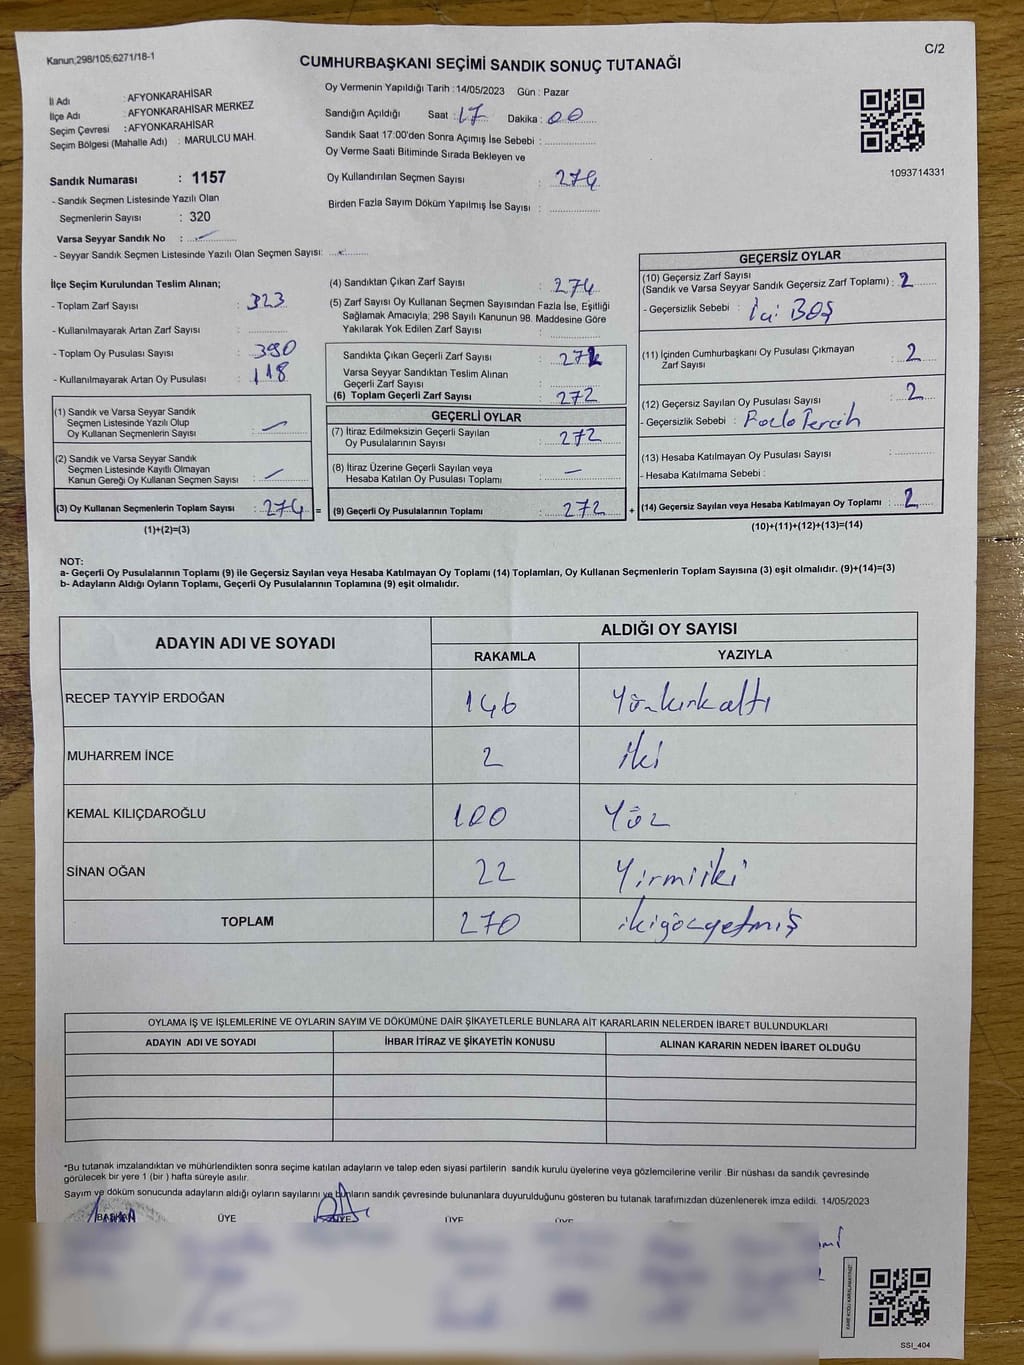 Kanun,298/105;6271/18-1
C/2
CUMHURBAŞKANI SEÇİMİ SANDIK SONUÇ TUTANAĞI
İl Adı : AFYONKARAHİSAR
İlçe Adı : AFYONKARAHİSAR MERKEZ
Seçim Çevresi : AFYONKARAHİSAR
Seçim Bölgesi (Mahalle Adı) : MARULCU MAH.
Sandık Numarası : 1157
- Sandık Seçmen Listesinde Yazılı Olan
Seçmenlerin Sayısı : 320
Varsa Seyyar Sandık No :
- Seyyar Sandık Seçmen Listesinde Yazılı Olan Seçmen Sayısı:
Oy Vermenin Yapıldığı Tarih : 14/05/2023 Gün : Pazar
Sandığın Açıldığı Saat : 17 Dakika : 00
Sandık Saat 17:00'den Sonra Açımış İse Sebebi :
Oy Verme Saati Bitiminde Sırada Bekleyen ve
Oy Kullandırılan Seçmen Sayısı : 274
Birden Fazla Sayım Döküm Yapılmış İse Sayısı :
1093714331
İlçe Seçim Kurulundan Teslim Alınan;
- Toplam Zarf Sayısı : 323
- Kullanılmayarak Artan Zarf Sayısı :
- Toplam Oy Pusulası Sayısı : 390
- Kullanılmayarak Artan Oy Pusulası : 118
(1) Sandık ve Varsa Seyyar Sandık
Seçmen Listesinde Yazılı Olup
Oy Kullanan Seçmenlerin Sayısı : —
(2) Sandık ve Varsa Seyyar Sandık
Seçmen Listesinde Kayıtlı Olmayan
Kanun Gereği Oy Kullanan Seçmen Sayısı : —
(3) Oy Kullanan Seçmenlerin Toplam Sayısı : 274 =
(1)+(2)=(3)
(4) Sandıktan Çıkan Zarf Sayısı : 274
(5) Zarf Sayısı Oy Kullanan Seçmen Sayısından Fazla İse, Eşitliği
Sağlamak Amacıyla; 298 Sayılı Kanunun 98. Maddesine Göre
Yakılarak Yok Edilen Zarf Sayısı :
Sandıkta Çıkan Geçerli Zarf Sayısı : 272
Varsa Seyyar Sandıktan Teslim Alınan
Geçerli Zarf Sayısı :
(6) Toplam Geçerli Zarf Sayısı : 272
GEÇERLİ OYLAR
(7) İtiraz Edilmeksizin Geçerli Sayılan
Oy Pusulalarının Sayısı : 272
(8) İtiraz Üzerine Geçerli Sayılan veya
Hesaba Katılan Oy Pusulası Toplamı : —
(9) Geçerli Oy Pusulalarının Toplamı : 272 +
GEÇERSİZ OYLAR
(10) Geçersiz Zarf Sayısı
(Sandık ve Varsa Seyyar Sandık Geçersiz Zarf Toplamı) : 2
- Geçersizlik Sebebi : İçi BOŞ
(11) İçinden Cumhurbaşkanı Oy Pusulası Çıkmayan
Zarf Sayısı : 2
(12) Geçersiz Sayılan Oy Pusulası Sayısı : 2
- Geçersizlik Sebebi : Fazla Tercih
(13) Hesaba Katılmayan Oy Pusulası Sayısı :
- Hesaba Katılmama Sebebi :
(14) Geçersiz Sayılan veya Hesaba Katılmayan Oy Toplamı : 2
(10)+(11)+(12)+(13)=(14)
NOT:
a- Geçerli Oy Pusulalarının Toplamı (9) ile Geçersiz Sayılan veya Hesaba Katılmayan Oy Toplamı (14) Toplamları, Oy Kullanan Seçmenlerin Toplam Sayısına (3) eşit olmalıdır. (9)+(14)=(3)
b- Adayların Aldığı Oyların Toplamı, Geçerli Oy Pusulalarının Toplamına (9) eşit olmalıdır.
ADAYIN ADI VE SOYADI ALDIĞI OY SAYISI
RAKAMLA YAZIYLA
RECEP TAYYİP ERDOĞAN 146 Yüzkırkaltı
MUHARREM İNCE 2 iki
KEMAL KILIÇDAROĞLU 100 Yüz
SİNAN OĞAN 22 Yirmiiki
TOPLAM 270 ikiyüzyetmiş
OYLAMA İŞ VE İŞLEMLERİNE VE OYLARIN SAYIM VE DÖKÜMÜNE DAİR ŞİKAYETLERLE BUNLARA AİT KARARLARIN NELERDEN İBARET BULUNDUKLARI
ADAYIN ADI VE SOYADI İHBAR İTİRAZ VE ŞİKAYETİN KONUSU ALINAN KARARIN NEDEN İBARET OLDUĞU
*Bu tutanak imzalandıktan ve mühürlendikten sonra seçime katılan adayların ve talep eden siyasi partilerin sandık kurulu üyelerine veya gözlemcilerine verilir .Bir nüshası da sandık çevresinde
görülecek bir yere 1 (bir ) hafta süreyle asılır.
Sayım ve döküm sonucunda adayların aldığı oyların sayılarını ve bunların sandık çevresinde bulunanlara duyurulduğunu gösteren bu tutanak tarafımızdan düzenlenerek imza edildi. 14/05/2023
BAŞKAN ÜYE ÜYE ÜYE ÜYE
SSI_404